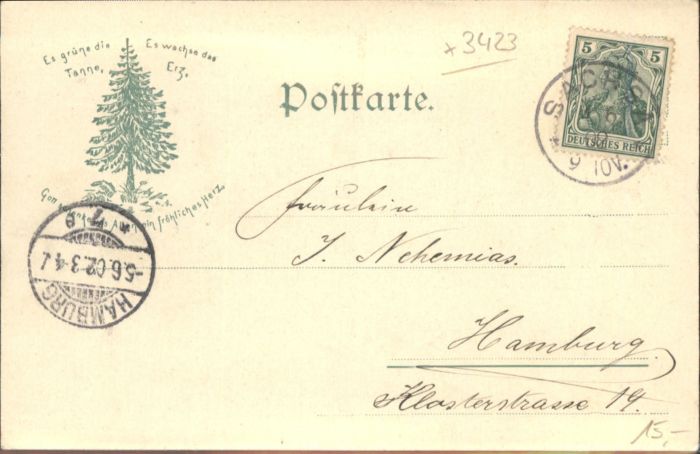 Es grüne die
Tanne,
Es wachse das
Erz,
x 3423
Postkarte.
5 5
DEUTSCHES REICH
9 10V.
Gott
ein fröhliches Herz.
Fräulein
J. Nehemias.
HAMBURG
5.6.02.3-4
Hamburg.
Klosterstrasse 19.
15,-